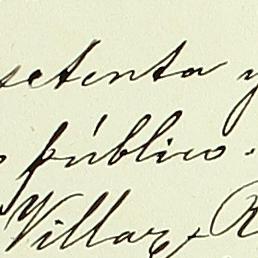 setenta y
público.
Villar, R